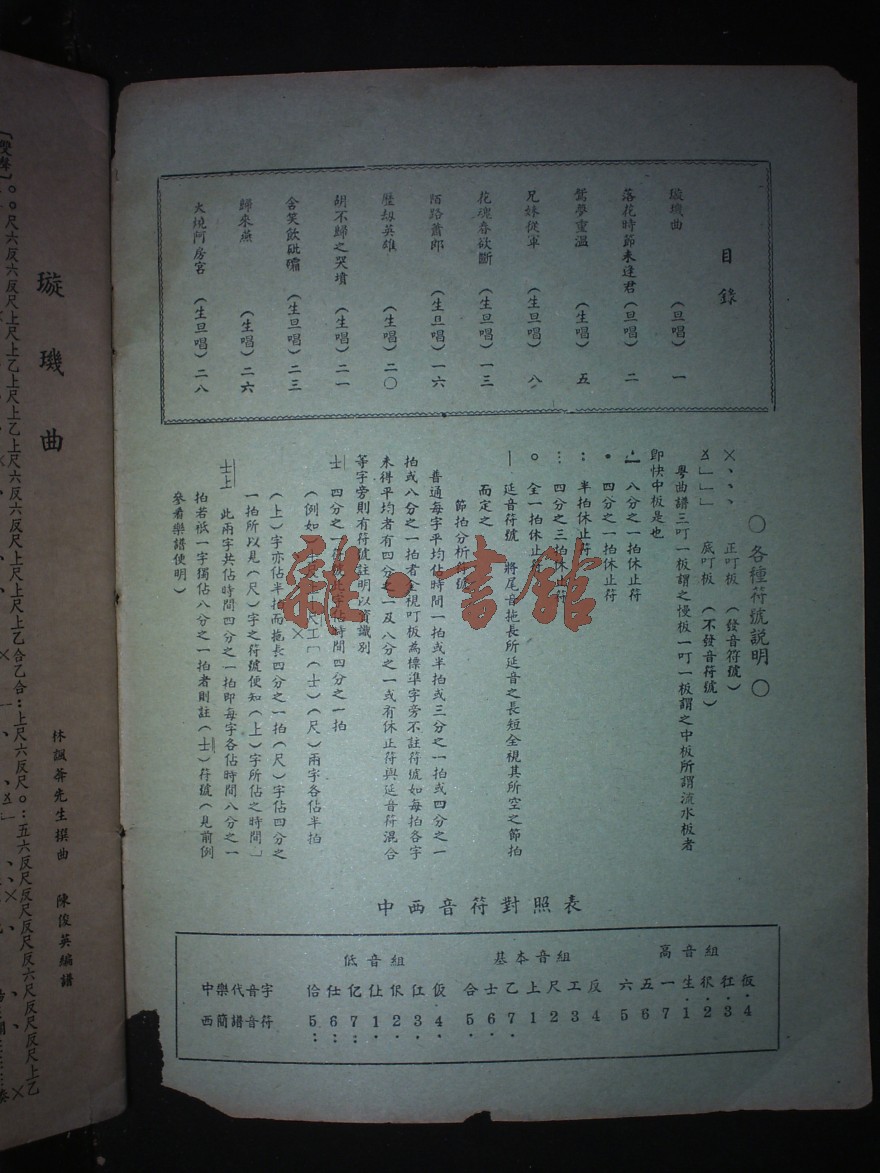 目錄
璇璣曲 (旦唱) 一
落花時節未逢君 (旦唱) 二
鴛夢重溫 (生唱) 五
兄妹從軍 (生旦唱) 八
花魂春欲斷 (生旦唱) 一三
陌路蕭郎 (生旦唱) 一六
歷劫英雄 (生唱) 二〇
胡不歸之哭墳 (生唱) 二一
含笑飲砒霜 (生旦唱) 二三
歸來燕 (生唱) 二六
火燒阿房宮 (生旦唱) 二八
○各種符號説明○
×、、、 正叮板 (發音符號)
底叮板 (不發音符號)
粵曲譜三叮一板謂之慢板一叮一板謂之中板所謂流水板者
即快中板是也
八分之一拍休止符
• 四分之一拍休止符
: 半拍休止符
⋮ 四分之三拍休止符
○ 全一拍休止符
| 延音符號 將尾音拖長所延音之長短全視其所空之節拍
而定之
節拍分析符號
普通每字平均佔時間一拍或半拍或三分之一拍或四分之一
拍或八分之一拍者全視叮板為標準字旁不註符號如每拍各字
未得平均者有四分之一及八分之一或有休止符與延音符混合
等字旁則有符號註明以資識別
士 四分之一符號此字佔時間四分之一拍
(士)(尺)兩字各佔半拍
(上)字亦佔半拍而拖長四分之一拍(尺)字佔四分之
一拍所以見(尺)字之符號便知(上)字所佔之時間」
士上 此兩字共佔時間四分之一拍即每字各佔時間八分之一
拍若祗一字獨佔八分之一拍者則註(士)符號(見前例
參看樂譜便明)
中西音符對照表
高音組
基本音組
低音組
中樂代音字 佮 仕 亿 仩 伬 仜 仮 合 士 乙 上 尺 工 反 六 五 一 生 伬 仜 仮
西簡譜音符 5: 6: 7: 1· 2· 3· 4· 5· 6· 7· 1 2 3 4 5 6 7 1 2 3 4
璇璣曲
林諷 先生撰曲 陳俊英編譜
雜·書館